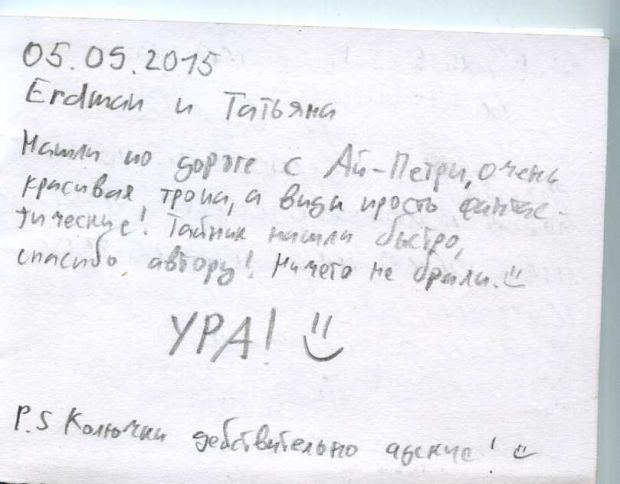 05.05.2015
Erdman и Татьяна
Нашли по дороге с Ай-Петри, очень
красивая тропа, а виды просто фантас-
тические! Тайник нашли быстро,
спасибо автору! Ничего не брали.
УРА!
P.S Колючки действительно адские!